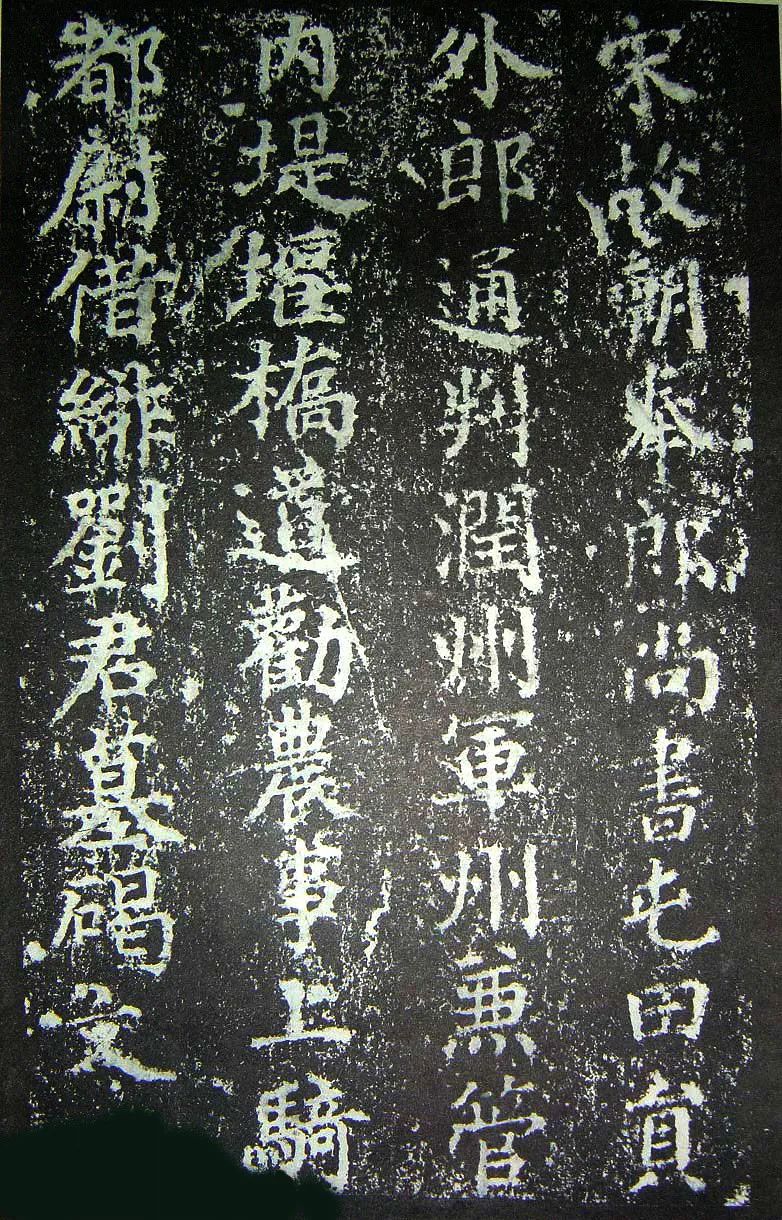 宋故朝奉郎尚書屯田員
外郎通判潤州軍州兼管
内堤堰橋道勸農事上騎
都尉借緋劉君墓碣文